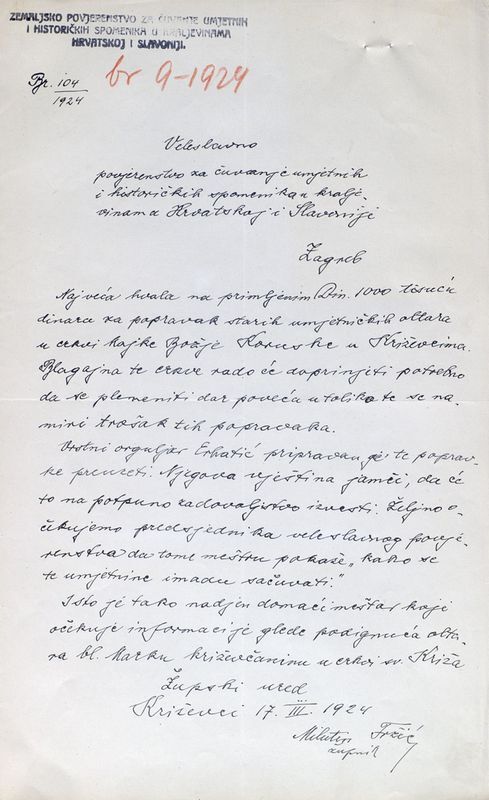 ZEMALJSKO POVJERENSTVO ZA ČUVANJE UMJETNIH
I HISTORIČKIH SPOMENIKA U KRALJEVINAMA
HRVATSKOJ I SLAVONIJI.
Br. 104/1924
br 9-1924
Veleslavno
povjerenstvo za čuvanje umjetnih
i historičkih spomenika u kralje-
vinama Hrvatskoj i Slavoniji
Zagreb
Najveća hvala na primljenim Din. 1000 tisuću
dinara za popravak starih umjetničkih oltara
u crkvi Majke Božje Koruške u Križevcima.
Blagajna te crkve rado će doprinjeti potrebno
da se plemeniti dar poveća utoliko te se na-
miri trošak tih popravaka.
Vrstni orguljar Erhatić pripravan je te poprav-
ke preuzeti. Njegova vještina jamči, da će
to na potpuno zadovoljstvo izvesti. Željno o-
čekujemo predsjednika veleslavnog povje-
renstva da tome meštru pokaže „kako se
te umjetnine imadu sačuvati."
Isto je tako nadjen domaći meštar koji
očekuje informacije glede podignuća olta-
ra bl. Marku križevčaninu u crkvi sv. Križa
Župski ured
Križevci 17. III. 1924
Milutin Fržić
župnik